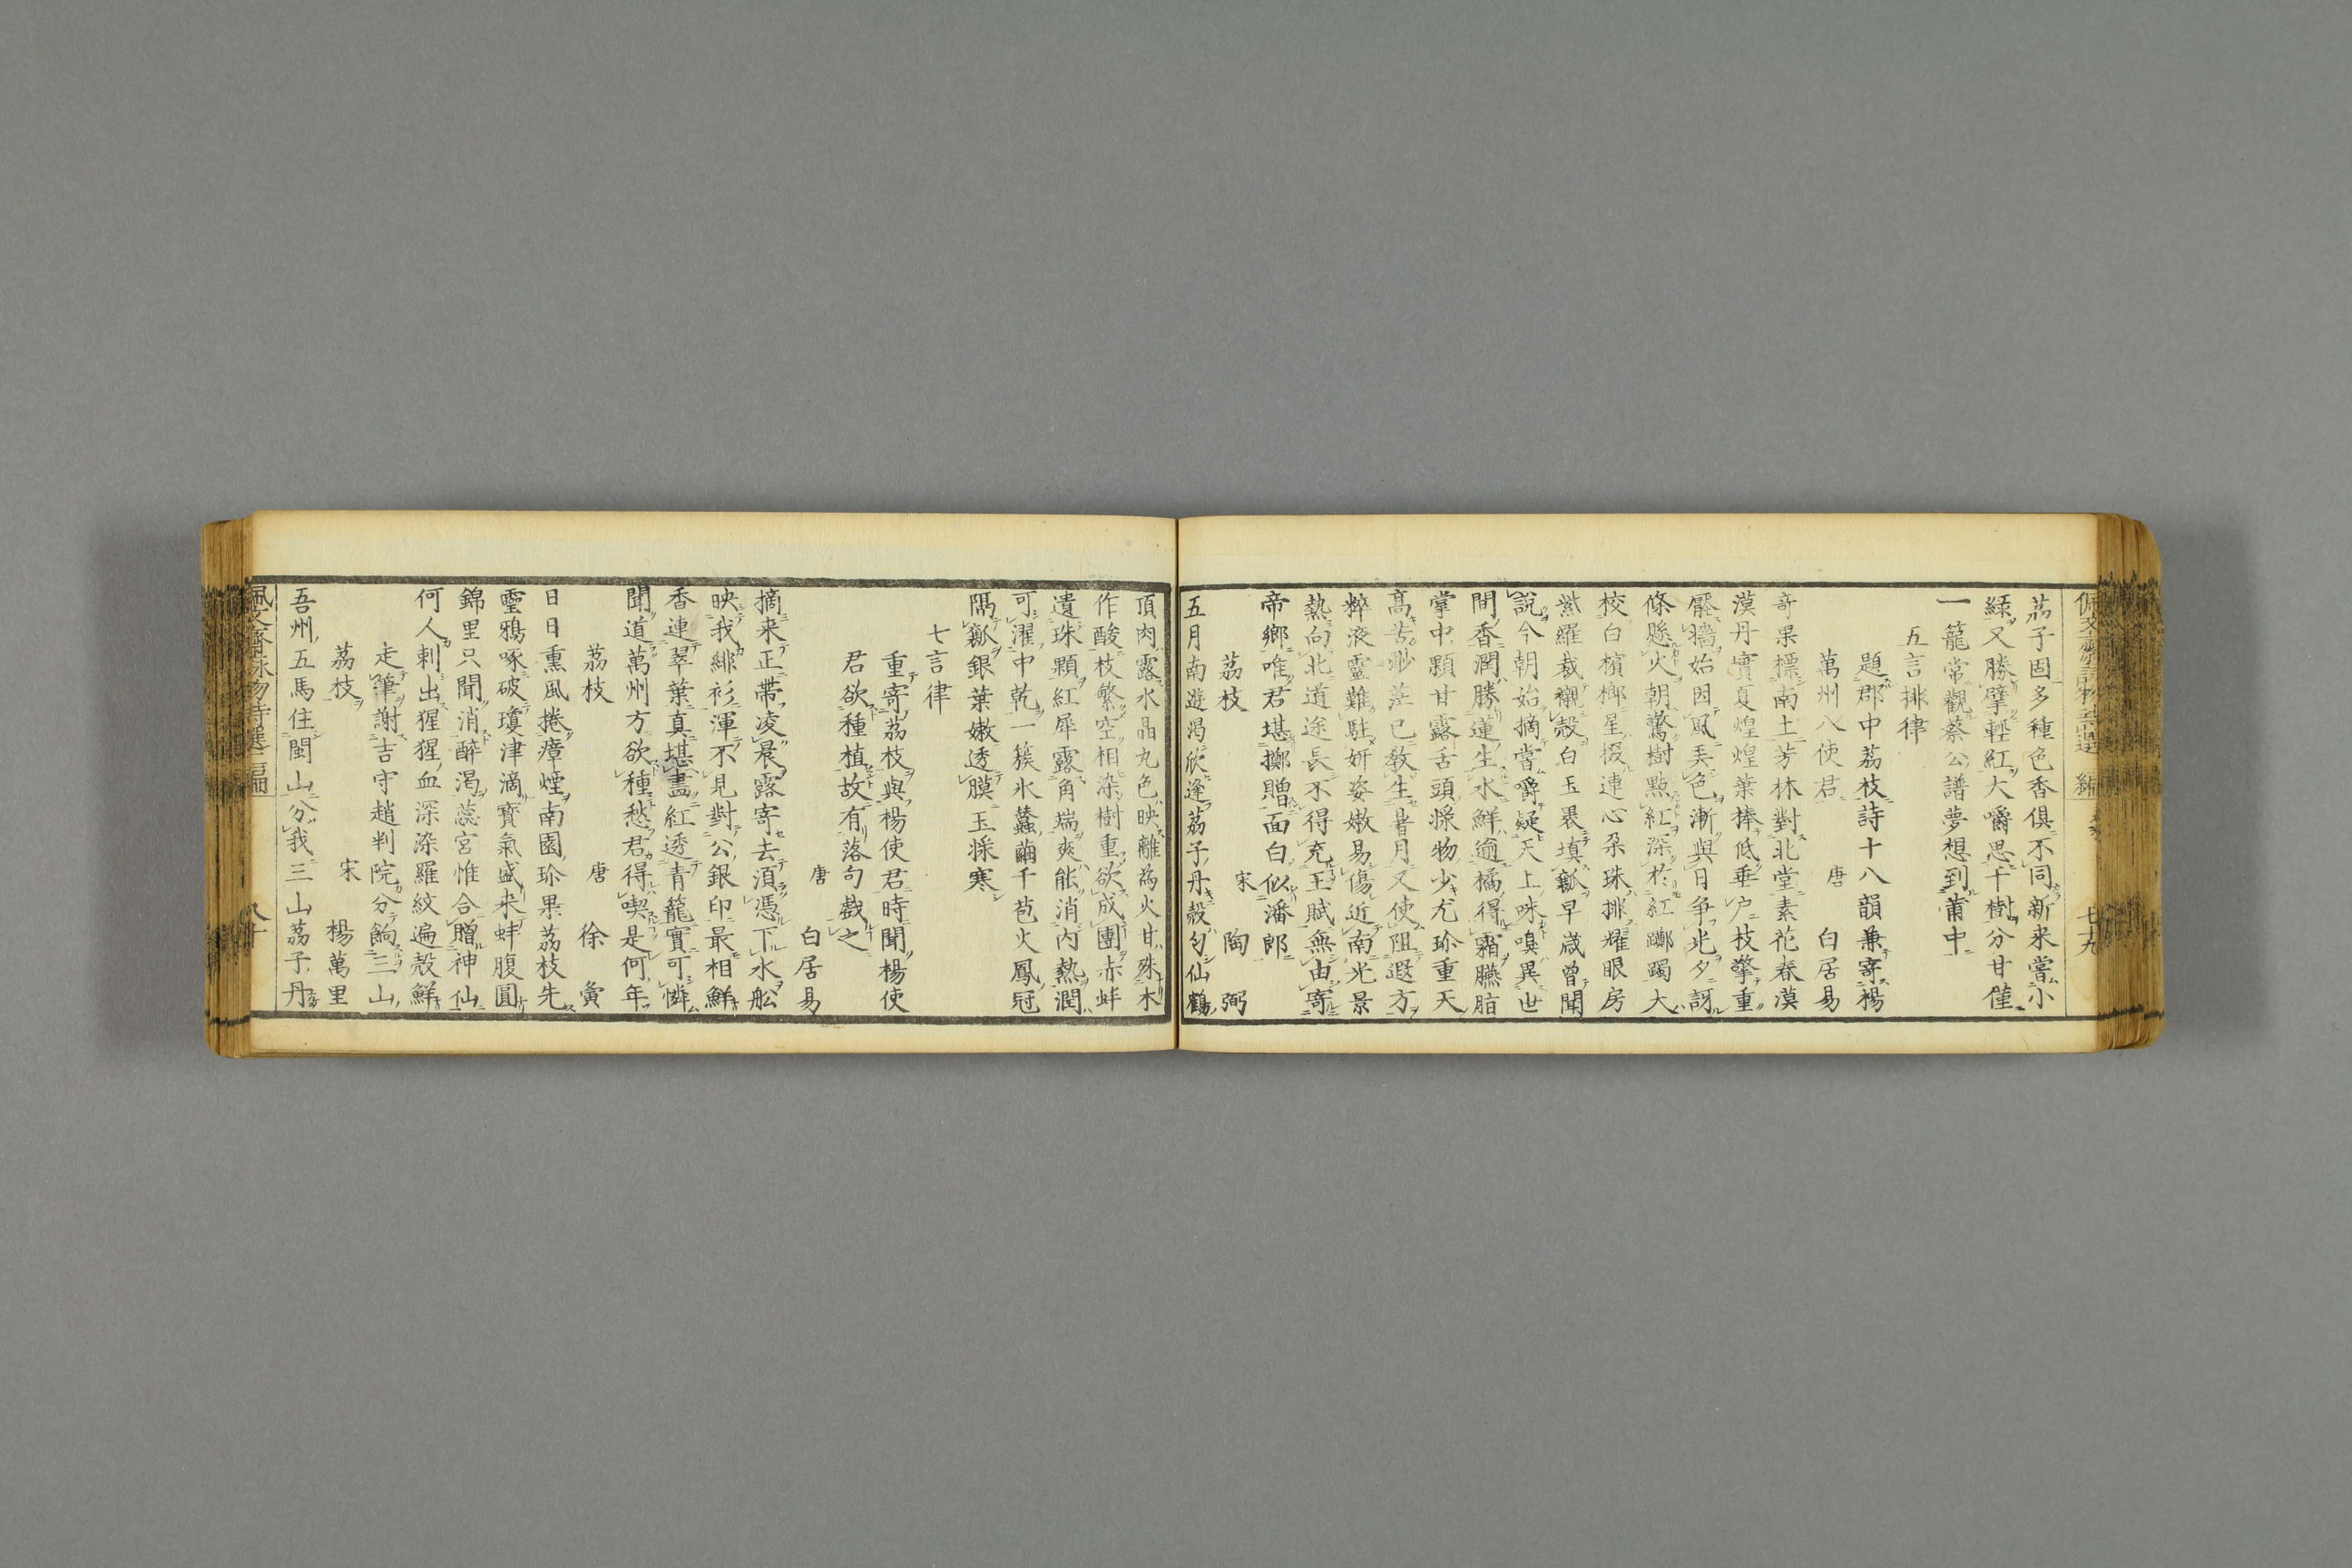 七十九
荔子固多種色香俱不同新来嘗小
緑又勝擘輕紅大嚼思千樹分甘僅
一籠常觀蔡公譜夢想到莆中
五言排律
題郡中荔枝詩十八韻兼寄楊
萬州八使君 唐 白居易
奇果標南土芳林對北堂素花春漠
漠丹實夏煌煌葉捧低垂户枝擎重
壓墻始因風弄色漸與日争光夕訝
條懸火朝驚樹點紅深於紅躑躅大
校白檳榔星掇連心朶珠排耀眼房
紫羅裁襯殻白玉裹填瓤早嵗曾聞
說今朝始摘嘗嚼疑天上味嗅異世
間香潤勝蓮生水鮮逾橘得霜臙脂
掌中顆甘露舌頭漿物少尤珍重天
髙苦渺茫已敎生暑月又使阻遐方
粹液靈難駐妍姿嫩易傷近南光景
熱向北道途長不得充王賦無由寄
帝郷唯君堪擲贈面白似潘郎
荔枝 宋 陶弼
五月南遊渇欣逢荔子丹殻匀仙鶴
頂肉露水晶丸色映離為火甘殊木
作酸枝繁空相染樹重欲成團赤蚌
遺珠顆紅犀露角端爽能消内熱潤
可濯中乾一簇氷蠶繭千苞火鳳冠
隅瓤銀葉嫩透膜玉漿寒
七言律
重寄荔枝與楊使君時聞楊使
君欲種植故有落句戯之
唐 白居易
摘来正帯凌晨露寄去須憑下水舩
映我緋衫渾不見對公銀印最相鮮
香連翠葉真堪畫紅透青籠實可憐
聞道萬州方欲種愁君得喫是何年
荔枝 唐 徐夤
日日熏風捲瘴煙南園珍果荔枝先
靈鴉啄破瓊津滴寳氣盛来蚌腹圓
錦里只聞消醉渇蕊宮惟合贈神仙
何人刺出猩猩血深染羅紋遍殻鮮
走筆謝吉守趙判院分餉三山
荔枝 宋 楊萬里
吾州五馬住閩山分我三山荔子丹
佩文齋詠物詩選二編 八十